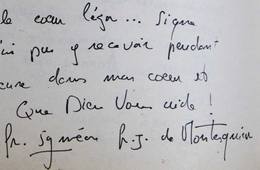 le cœur léger... Signe
pu y recevoir pendant
dans mon cœur et
Que Dieu Vous aide !
fr. Syméon h.j. de Montesquiou